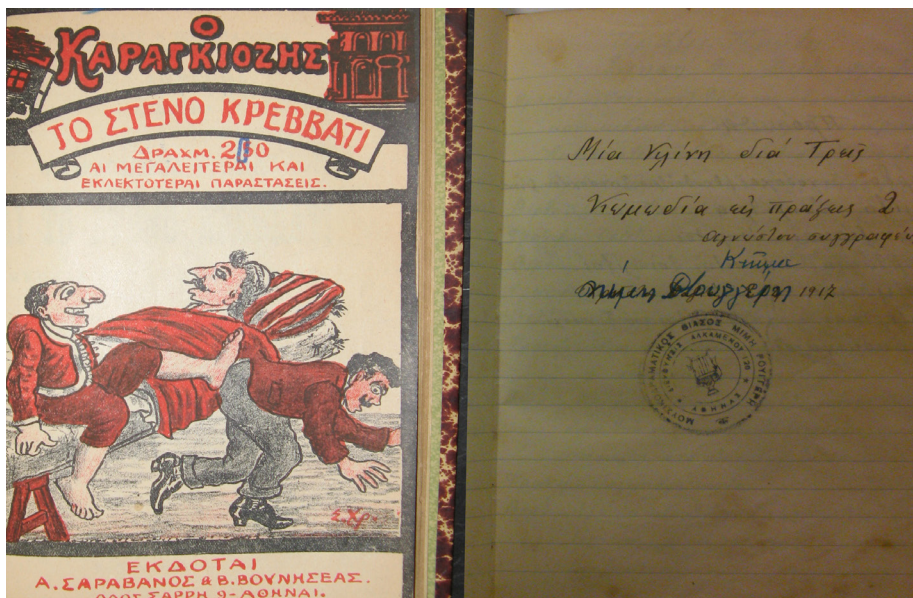 Ο
ΚΑΡΑΓΚΙΟΖΗΣ
ΤΟ ΣΤΕΝΟ ΚΡΕΒΒΑΤΙ
ΔΡΑΧΜ. 2
ΑΙ ΜΕΓΑΛΕΙΤΕΡΑΙ ΚΑΙ
ΕΚΛΕΚΤΟΤΕΡΑΙ ΠΑΡΑΣΤΑΣΕΙΣ.
Σ.ΧΡ
ΕΚΔΟΤΑΙ
Α. ΣΑΡΑΒΑΝΟΣ & Β. ΒΟΥΝΗΣΕΑΣ.
ΟΔΟΣ ΣΑΡΡΗ 9-ΑΘΗΝΑΙ.
Μία Κλίνη διά Τρεῖς
Κωμωδία εἰς πράξεις 2
ἀγνώστου συγγραφέως
Κτῆμα
1917
ΜΟΥΣΙΚΟΔΡΑΜΑΤΙΚΟΣ ΘΙΑΣΟΣ ΜΙΜΗ ΡΟΥΓΓΕΡΗ